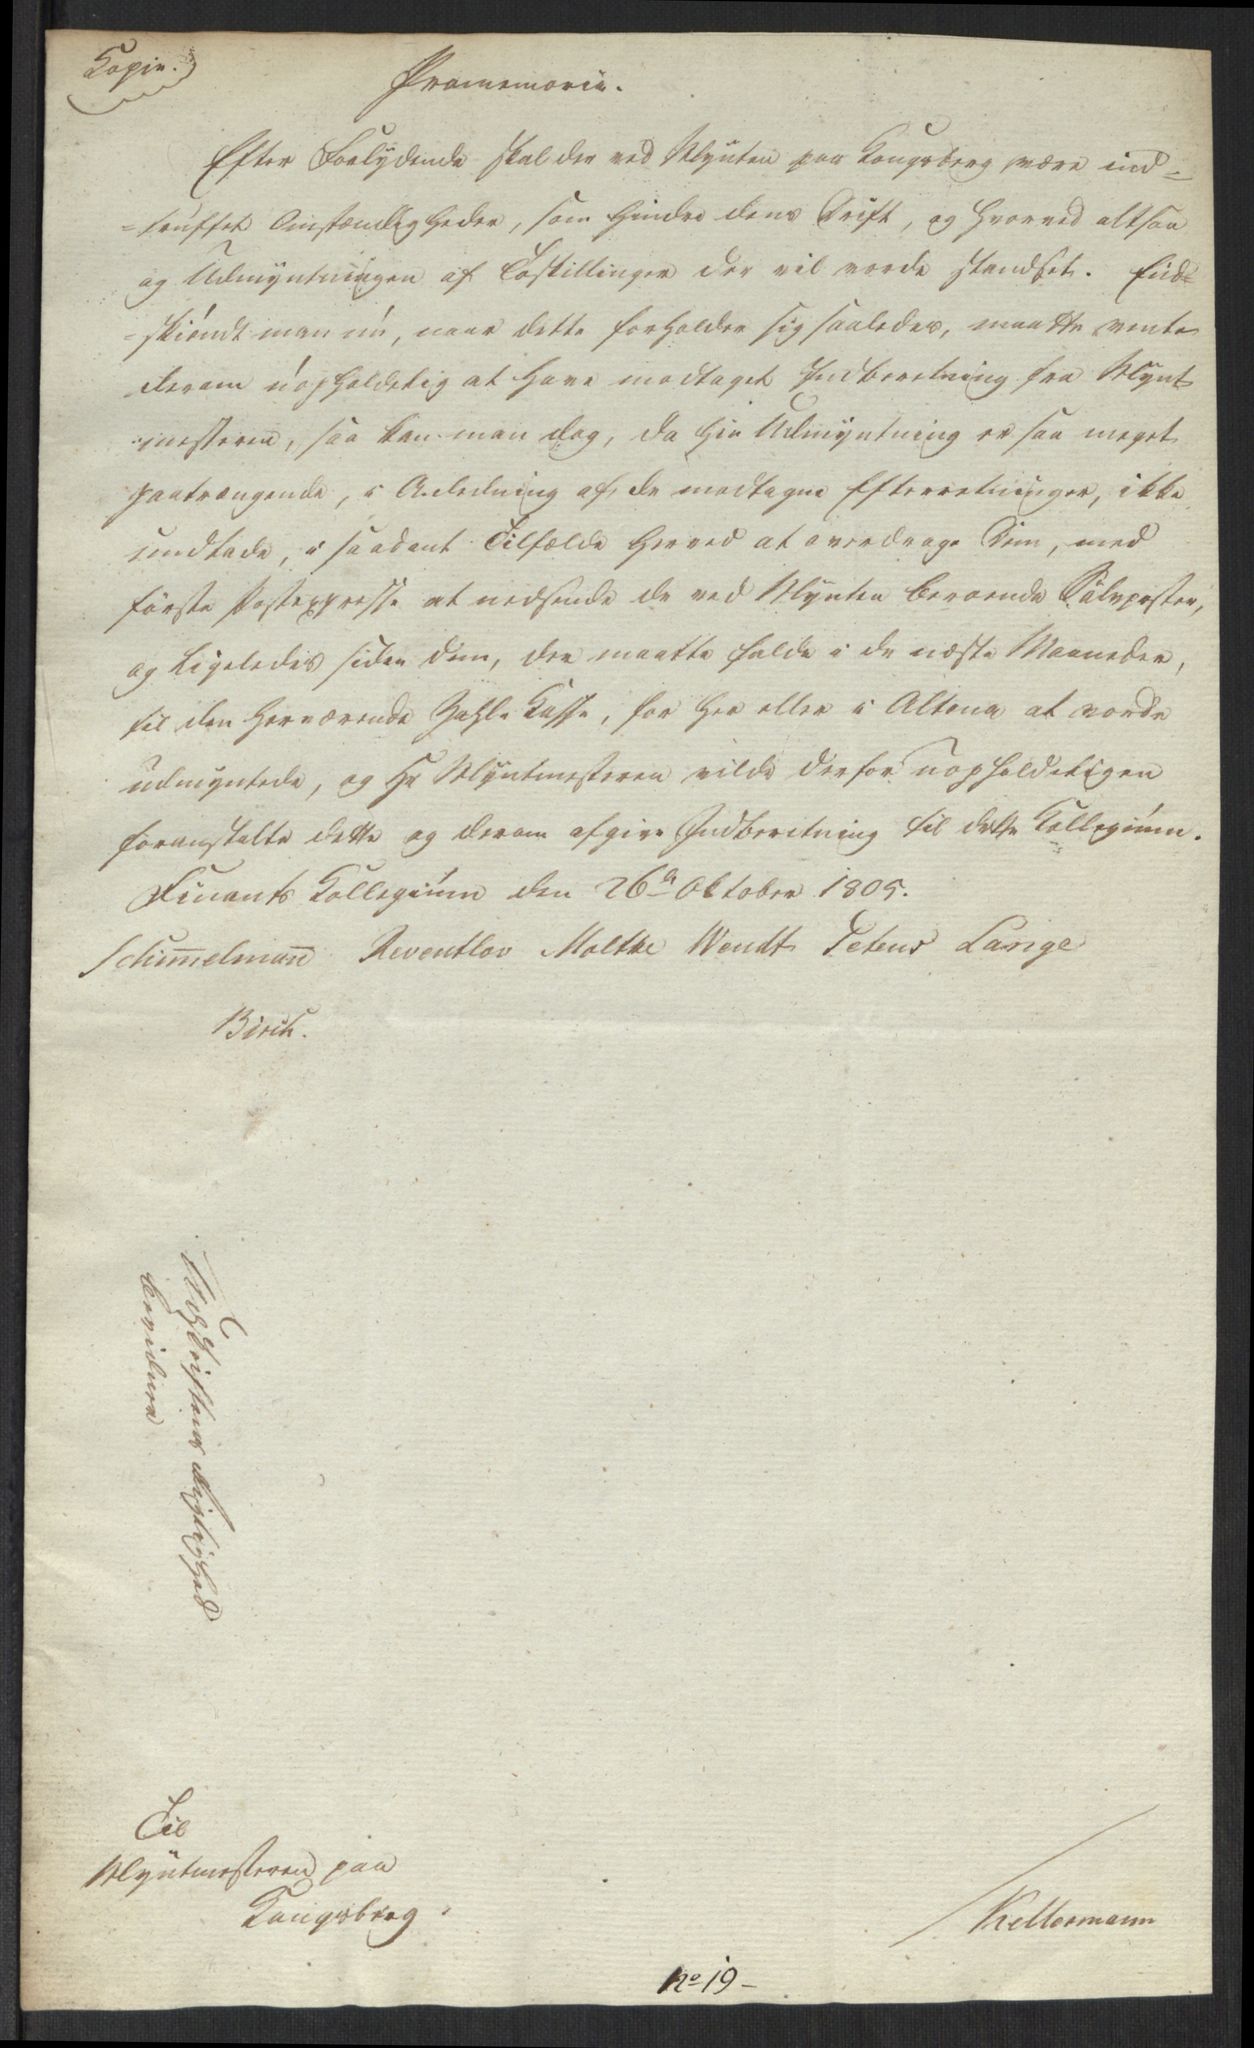 Kopie.
Promemoria.
Efter Forlydende skal der ved Mynten paa Kongsberg være ind-
-truffet Omstændigheder, som hindre dens Drift, og hvorved altsaa
og Udmyntningen af Toskillinger der vil vorde standset. End-
-skiöndt man nu, naar dette forholder sig saaledes, maatte vente
derom uopholdelig at have modtaget Indberetning fra Mynt-
-mesteren, saa kan man dog, da hin Udmyntning er saa meget
paatrængende, i Anledning af de modtagne Efterretninger, ikke
undlade, i saadant Tilfælde herved at overdrage Dem, med
förste Postexpresse at nedsende de ved Mynten beroende Sölvposter,
og ligeledes siden dem, der maatte falde i de næste Maaneder,
til den herværende Zahl-Kasse, for her eller i Altona at vorde
udmyntede, og Hr Myntmesteren vilde derfor uopholdeligen
foranstalte dette og derom afgive Indberetning til dette Kollegium.
Finants Kollegium den 26de Oktober 1805.
Schimmelmann Reventlov Moltke Wendt Petens Lange
Birch.
Afskriftens Rigtighed
bevidner
Til
Myntmesteren paa
Kongsberg.
Kellermann
No 19-